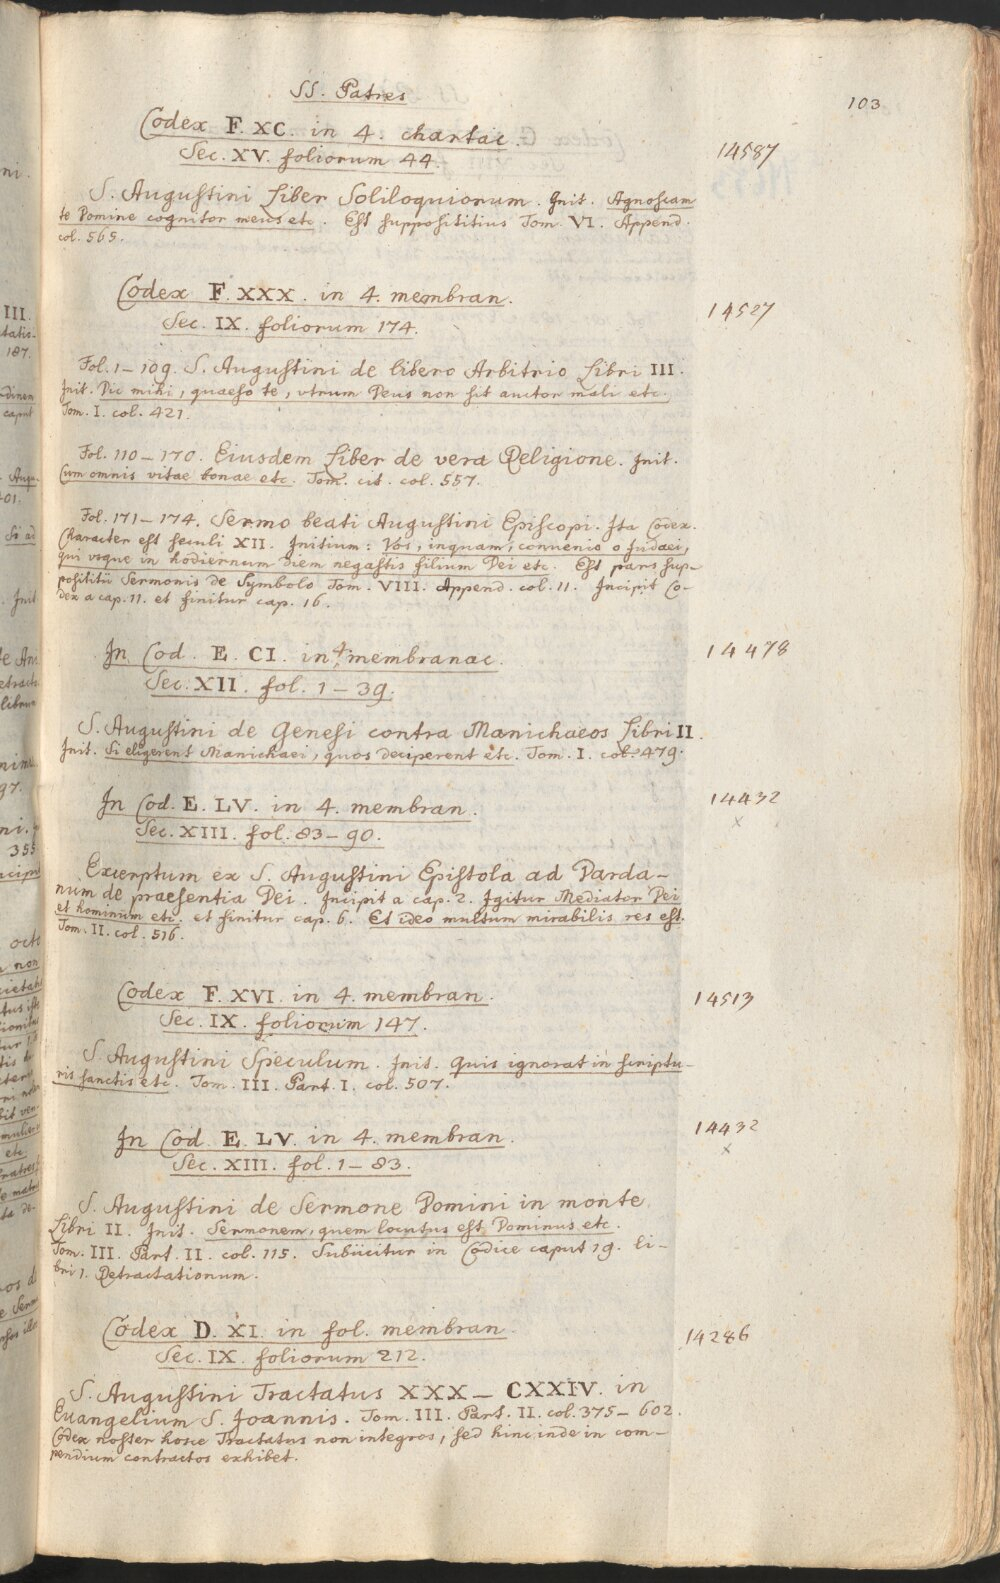 103
SS. Patres
Codex F. XC. in 4. chartac.
14587
Sec. XV. foliorum 44.
S. Augustini Liber Soliloquiorum. Init. Agnoscam
te Domine cognitor meus etc. Est supposititius Tom. VI. Append.
col. 565.
Codex F. XXX. in 4. membran.
14527
Sec. IX. foliorum 174.
Fol. 1–109. S. Augustini de libero Arbitrio Libri III.
Init. Dic mihi, quaeso te, vtrum Deus non sit auctor mali etc.
Tom. I. col. 421.
Fol. 110–170. Eiusdem Liber de vera Religione. Init.
Cum omnis vitae bonae etc. Tom. cit. col. 557.
Fol. 171–174. Sermo beati Augustini Episcopi. Ita Codex.
Character est seculi XII. Initium: Vos, inquam, conuenio o Judaei,
qui vsque in hodiernum diem negastis filium Dei etc. Est pars sup-
posititii Sermonis de Symbolo Tom. VIII. Append. col. 11. Incipit Co-
dex a cap. 11. et finitur cap. 16.
In Cod. E. CI. in 4. membranac.
14478
Sec. XII. fol. 1–39.
S. Augustini de Genesi contra Manichaeos Libri II.
Init. Si eligerent Manichaei, quos deciperent etc. Tom. I. col. 479.
In Cod. E. LV. in 4. membran.
14432
x
Sec. XIII. fol. 83–90.
Excerptum ex S. Augustini Epistola ad Darda-
num de praesentia Dei. Incipit a cap. 2. Igitur Mediator Dei
et hominum etc. et finitur cap. 6. Et ideo multum mirabilis res est.
Tom. II. col. 516.
Codex F. XVI. in 4. membran.
14513
Sec. IX. foliorum 147.
S. Augustini Speculum. Init. Quis ignorat in scriptu-
ris sanctis etc. Tom. III. Part. I. col. 507.
In Cod. E. LV. in 4. membran.
14432
x
Sec. XIII. fol. 1–83.
S. Augustini de Sermone Domini in monte
Libri II. Init. Sermonem, quem locutus est Dominus etc.
Tom. III. Part. II. col. 115. Subiicitur in Codice caput 19. li-
bri 1. Retractationum.
Codex D. XI. in fol. membran.
14286
Sec. IX. foliorum 212.
S. Augustini Tractatus XXX–CXXIV. in
Euangelium S. Joannis. Tom. III. Part. II. col. 375–602.
Codex noster hosce Tractatus non integros, sed hinc inde in com-
pendium contractos exhibet.